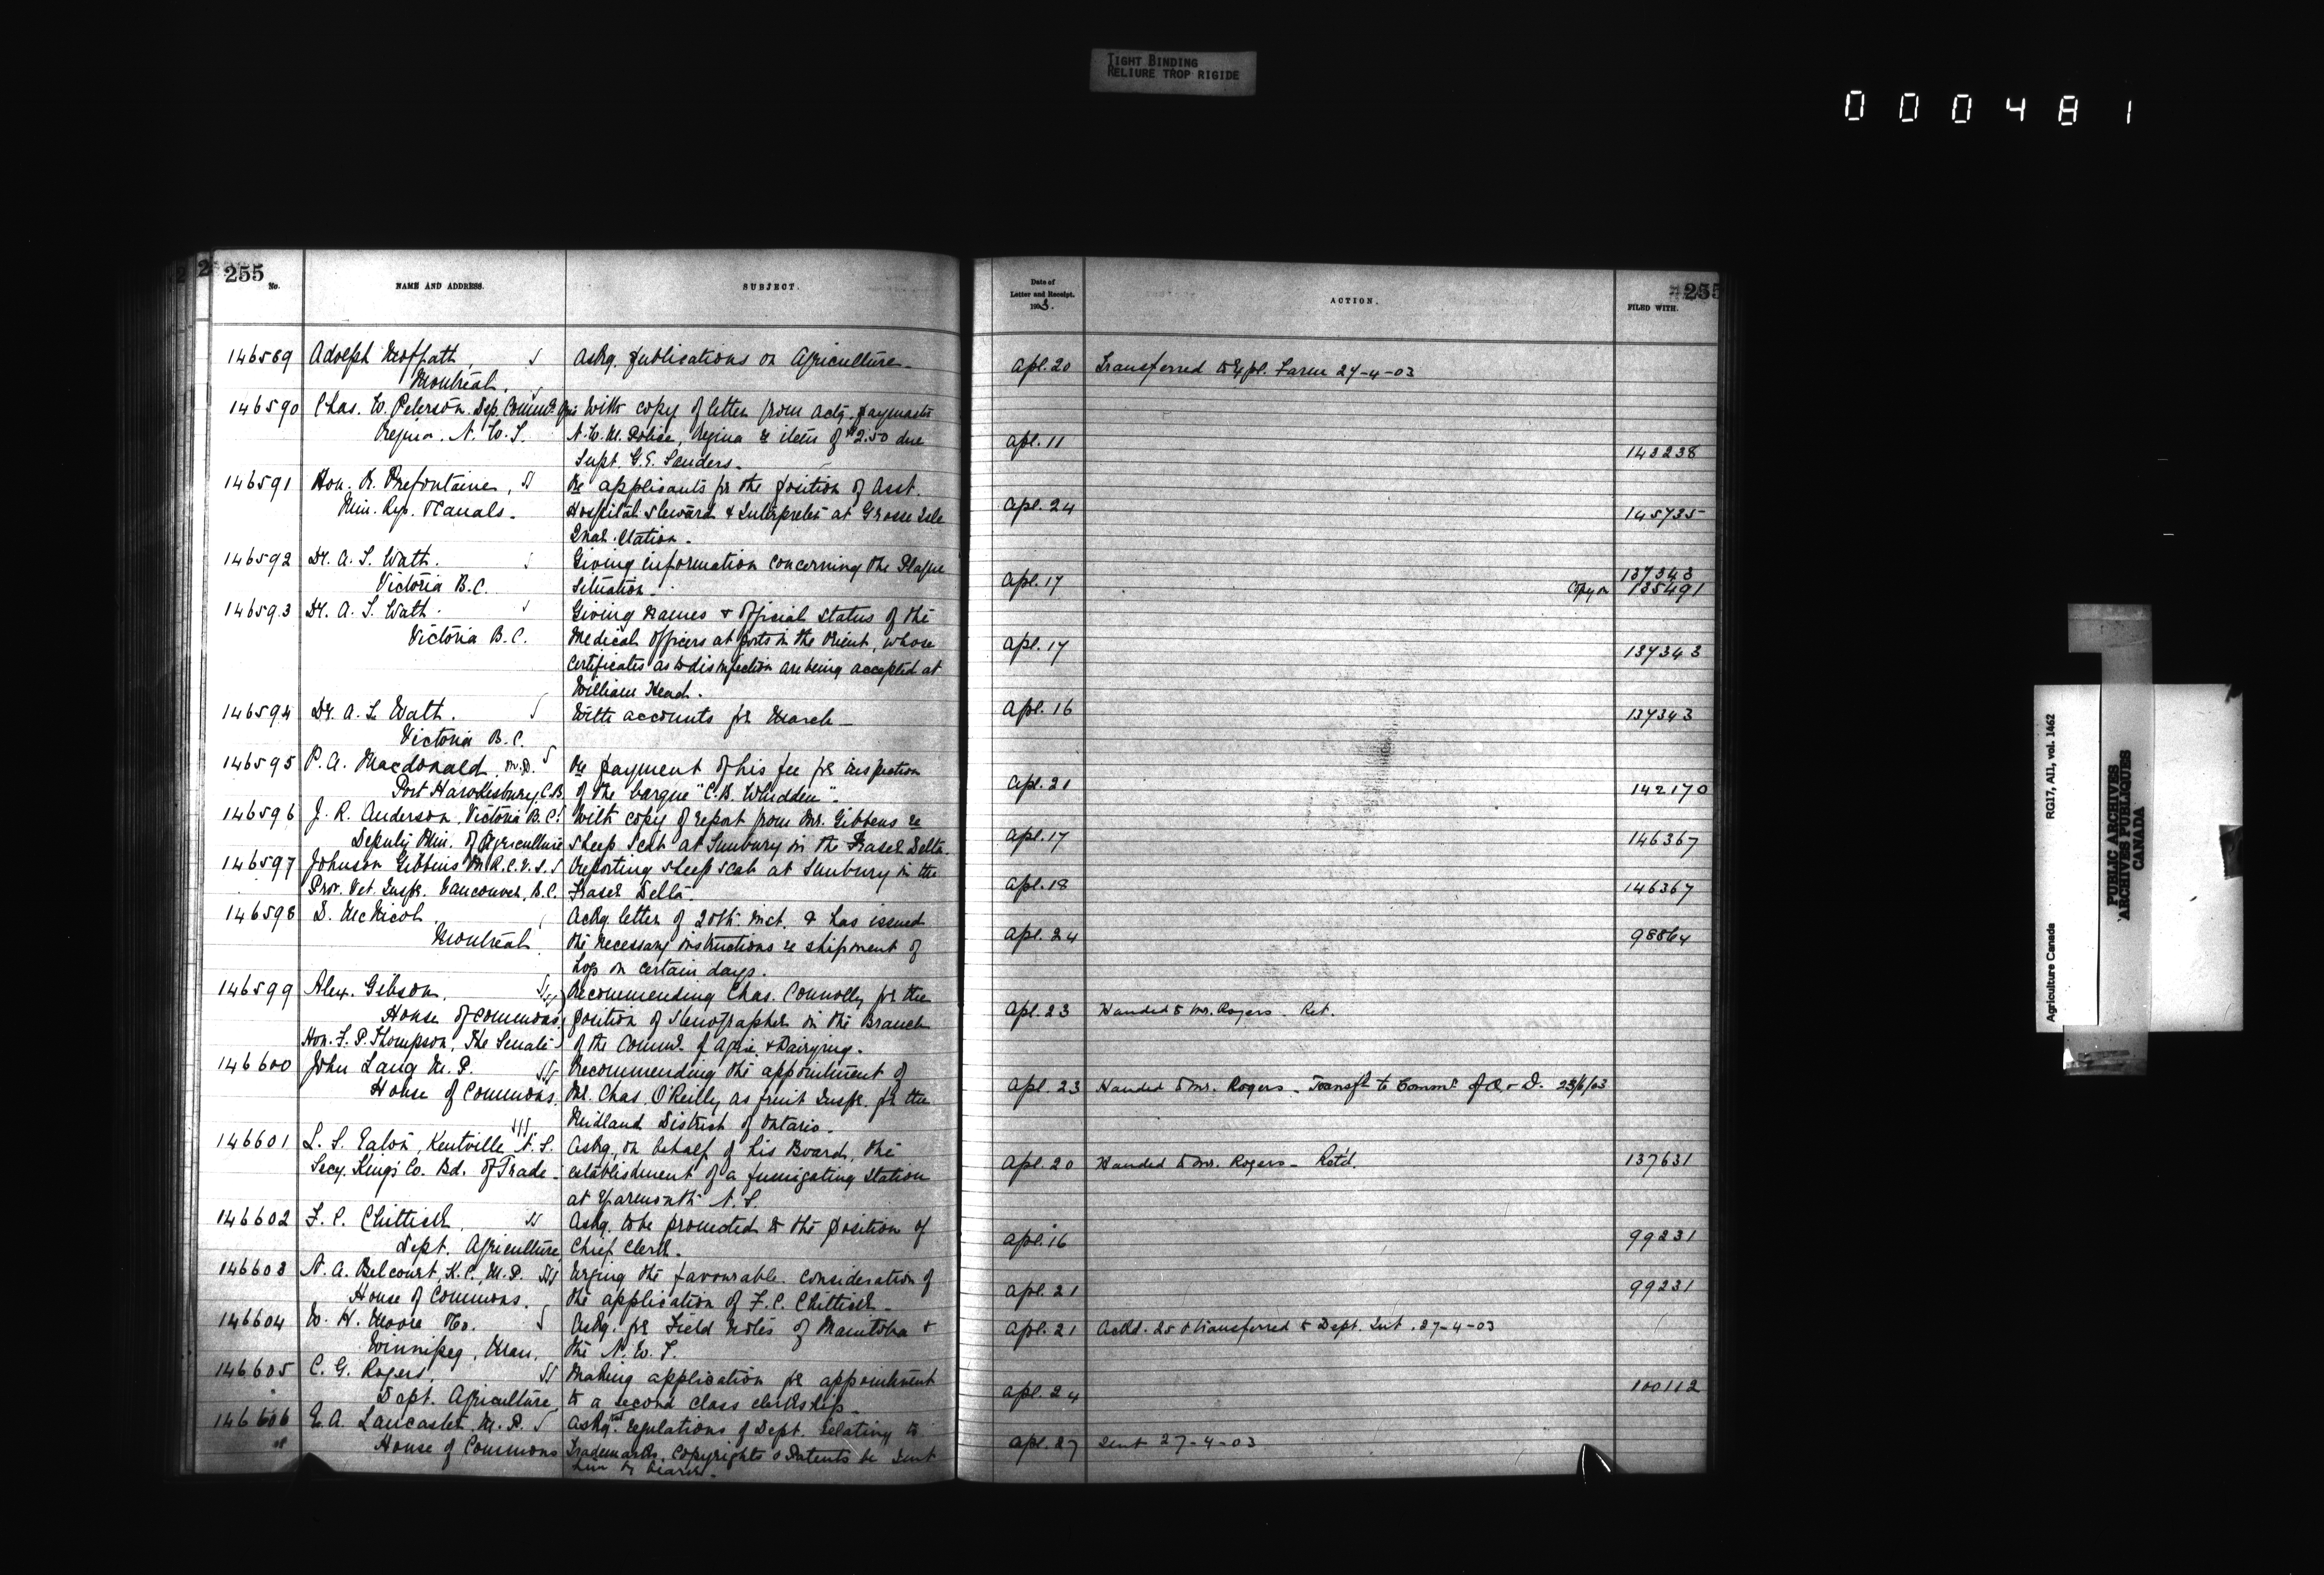 TIGHT BINDING
RELIURE TROP RIGIDE
000481
255
No.
NAME AND ADDRESS.
SUBJECT.
Date of
Letter and Receipt.
1903.
ACTION.
255
FILED WITH.
146589 Adolph Moffath, Askg. publications on Agriculture. Apl. 20 Transferred to Expl. Farm 27-4-03
Montreal.
146590 Chas. W. Peterson Dep. Commr. Agric With copy of letter from Actg. paymaster
Regina. N.W.T. N.W.M. Police, Regina re item of $2.50 due Apl. 11 143238
Supt. G.E. Sanders.
146591 Hon. R. Prefontaine, Re applicants for the position of Asst.
Min. Rys. & Canals. Hospital Steward & Interpreter at Grosse Isle Apl. 24 145735
Quar. Station.
146592 Dr. A. T. Watt. Giving information concerning the Plague
Victoria B.C. Situation. Apl. 17 137343
Copy on 135491
146593 Dr. A. T. Watt. Giving Names & Official Status of the
Victoria B.C. Medical Officers at ports in the Orient, whose Apl. 17 137343
Certificates as to disinfection are being accepted at
William Head.
146594 Dr. A. T. Watt. With accounts for March Apl. 16 137343
Victoria B.C.
146595 P. A. Macdonald M.D. Re payment of his fee for inspection
Port Hawkesbury, C.B. of the barque "C.B. Whidden". Apl. 21 142170
146596 J. R. Anderson, Victoria B.C. With copy of report from Mr. Gibbens re
Deputy Min. of Agriculture Sheep Scab at Sunbury in the Fraser Delta. Apl. 17 146367
146597 Johnson Gibbins M.R.C.V.S. Reporting Sheep Scab at Sunbury in the
Prov. Vet. Inspr. Vancouver, B.C. Fraser Delta. Apl. 18 146367
146598 D. McNicoll. Ackg. letter of 20th inst. & has issued
Montreal the necessary instructions re shipment of Apl. 24 98864
hogs on certain days.
146599 Alex. Gibson. Recommending Chas. Connolly for the
House of Commons. position of Stenographer in the Branch Apl. 23 Handed to Mr. Rogers. Ret.
Hon. F. P. Thompson, The Senate of the Commr. of Agric. & Dairying.
146600 John Lang M.P. Recommending the appointment of
House of Commons. Mr. Chas. O'Reilly as fruit Inspr. for the Apl. 23 Handed to Mr. Rogers - Transfd. to Commr. of A. & D. 23/6/03
Midland District of Ontario.
146601 L. S. Eaton, Kentville N.S. Askg. on behalf of his Board, the
Secy. King's Co. Bd. of Trade. establishment of a fumigating station Apl. 20 Handed to Mr. Rogers - Retd. 137631
at Yarmouth N.S.
146602 F. C. Chittick. Askg. to be promoted to the position of
Dept. Agriculture Chief Clerk. Apl. 16 99231
146603 N. A. Belcourt, K.C., M.P. Urging the favourable consideration of
House of Commons. the application of F. C. Chittick. Apl. 21 99231
146604 W. H. Moore & Co. Askg. for Field Notes of Manitoba & Apl. 21 Ackd. 25 & transferred to Dept. Int. 27-4-03
Winnipeg, Man. the N.W.T.
146605 C. G. Rogers. Making application for appointment
Dept. Agriculture to a second class clerkship. Apl. 24 100112
146606 E. A. Lancaster M.P. Askg. that regulations of Dept. relating to
House of Commons Trademarks, Copyrights & Patents be sent Apl. 27 Sent 27-4-03
him by bearer.
Agriculture Canada RG17, A11, vol. 1462
PUBLIC ARCHIVES
ARCHIVES PUBLIQUES
CANADA